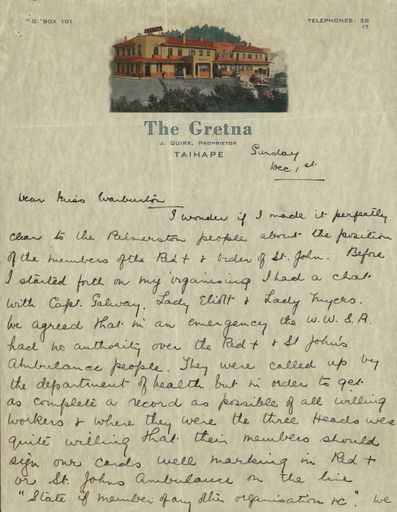 P.O. BOX 101
TELEPHONES: 38
17
The Gretna
J. QUIRK, PROPRIETOR
TAIHAPE
Sunday
Dec 1st.
Dear Miss Warburton
I wonder if I made it perfectly
clear to the Palmerston people about the position
of the members of the Red + & Order of St. John. Before
I started forth on my organising I had a chat
with Capt. Galway, Lady Eliott & Lady Myers.
We agreed that in an emergency the W.W.S.A.
had no authority over the Red + & St Johns
Ambulance people. They were called up by
the department of health but in order to get
as complete a record as possible of all willing
workers & where they were the three Heads were
quite willing that their members should
sign our cards well marking in Red +
or St. Johns Ambulance on the line
"State if member of any other organisation &c". We